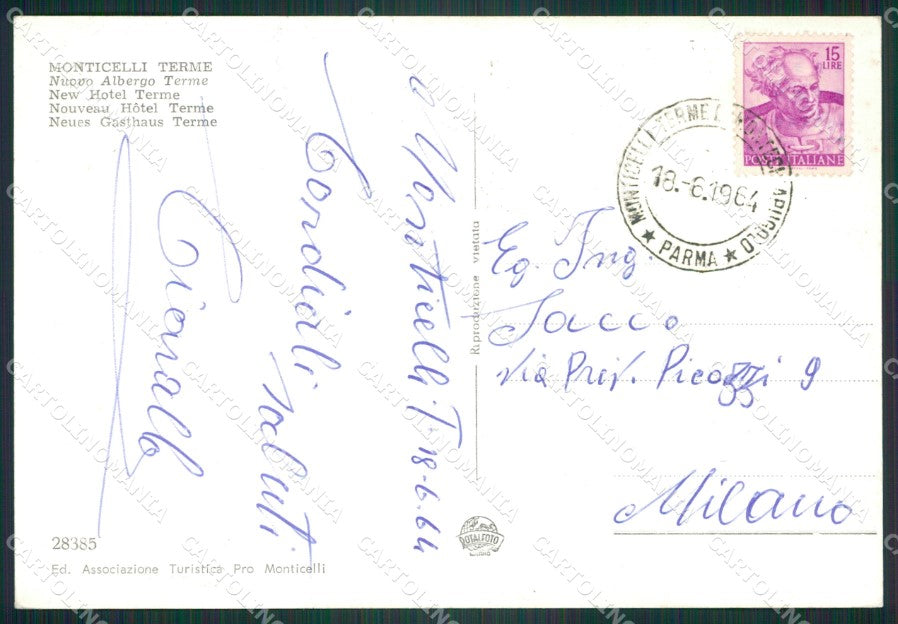 MONTICELLI TERME
Nuovo Albergo Terme
New Hotel Terme
Nouveau Hôtel Terme
Neues Gasthaus Terme
Monticelli T. 18-6-64
Cordiali saluti
28385
Ed. Associazione Turistica Pro Monticelli
Riproduzione vietata
DOTALFOTO
MILANO
15
LIRE
POSTE ITALIANE
MONTICELLI TERME
18.-6.1964
★ PARMA ★
Eg. Ing.
Sacco
Via Priv. Picozzi 9
Milano
CARTOLINOMANIA